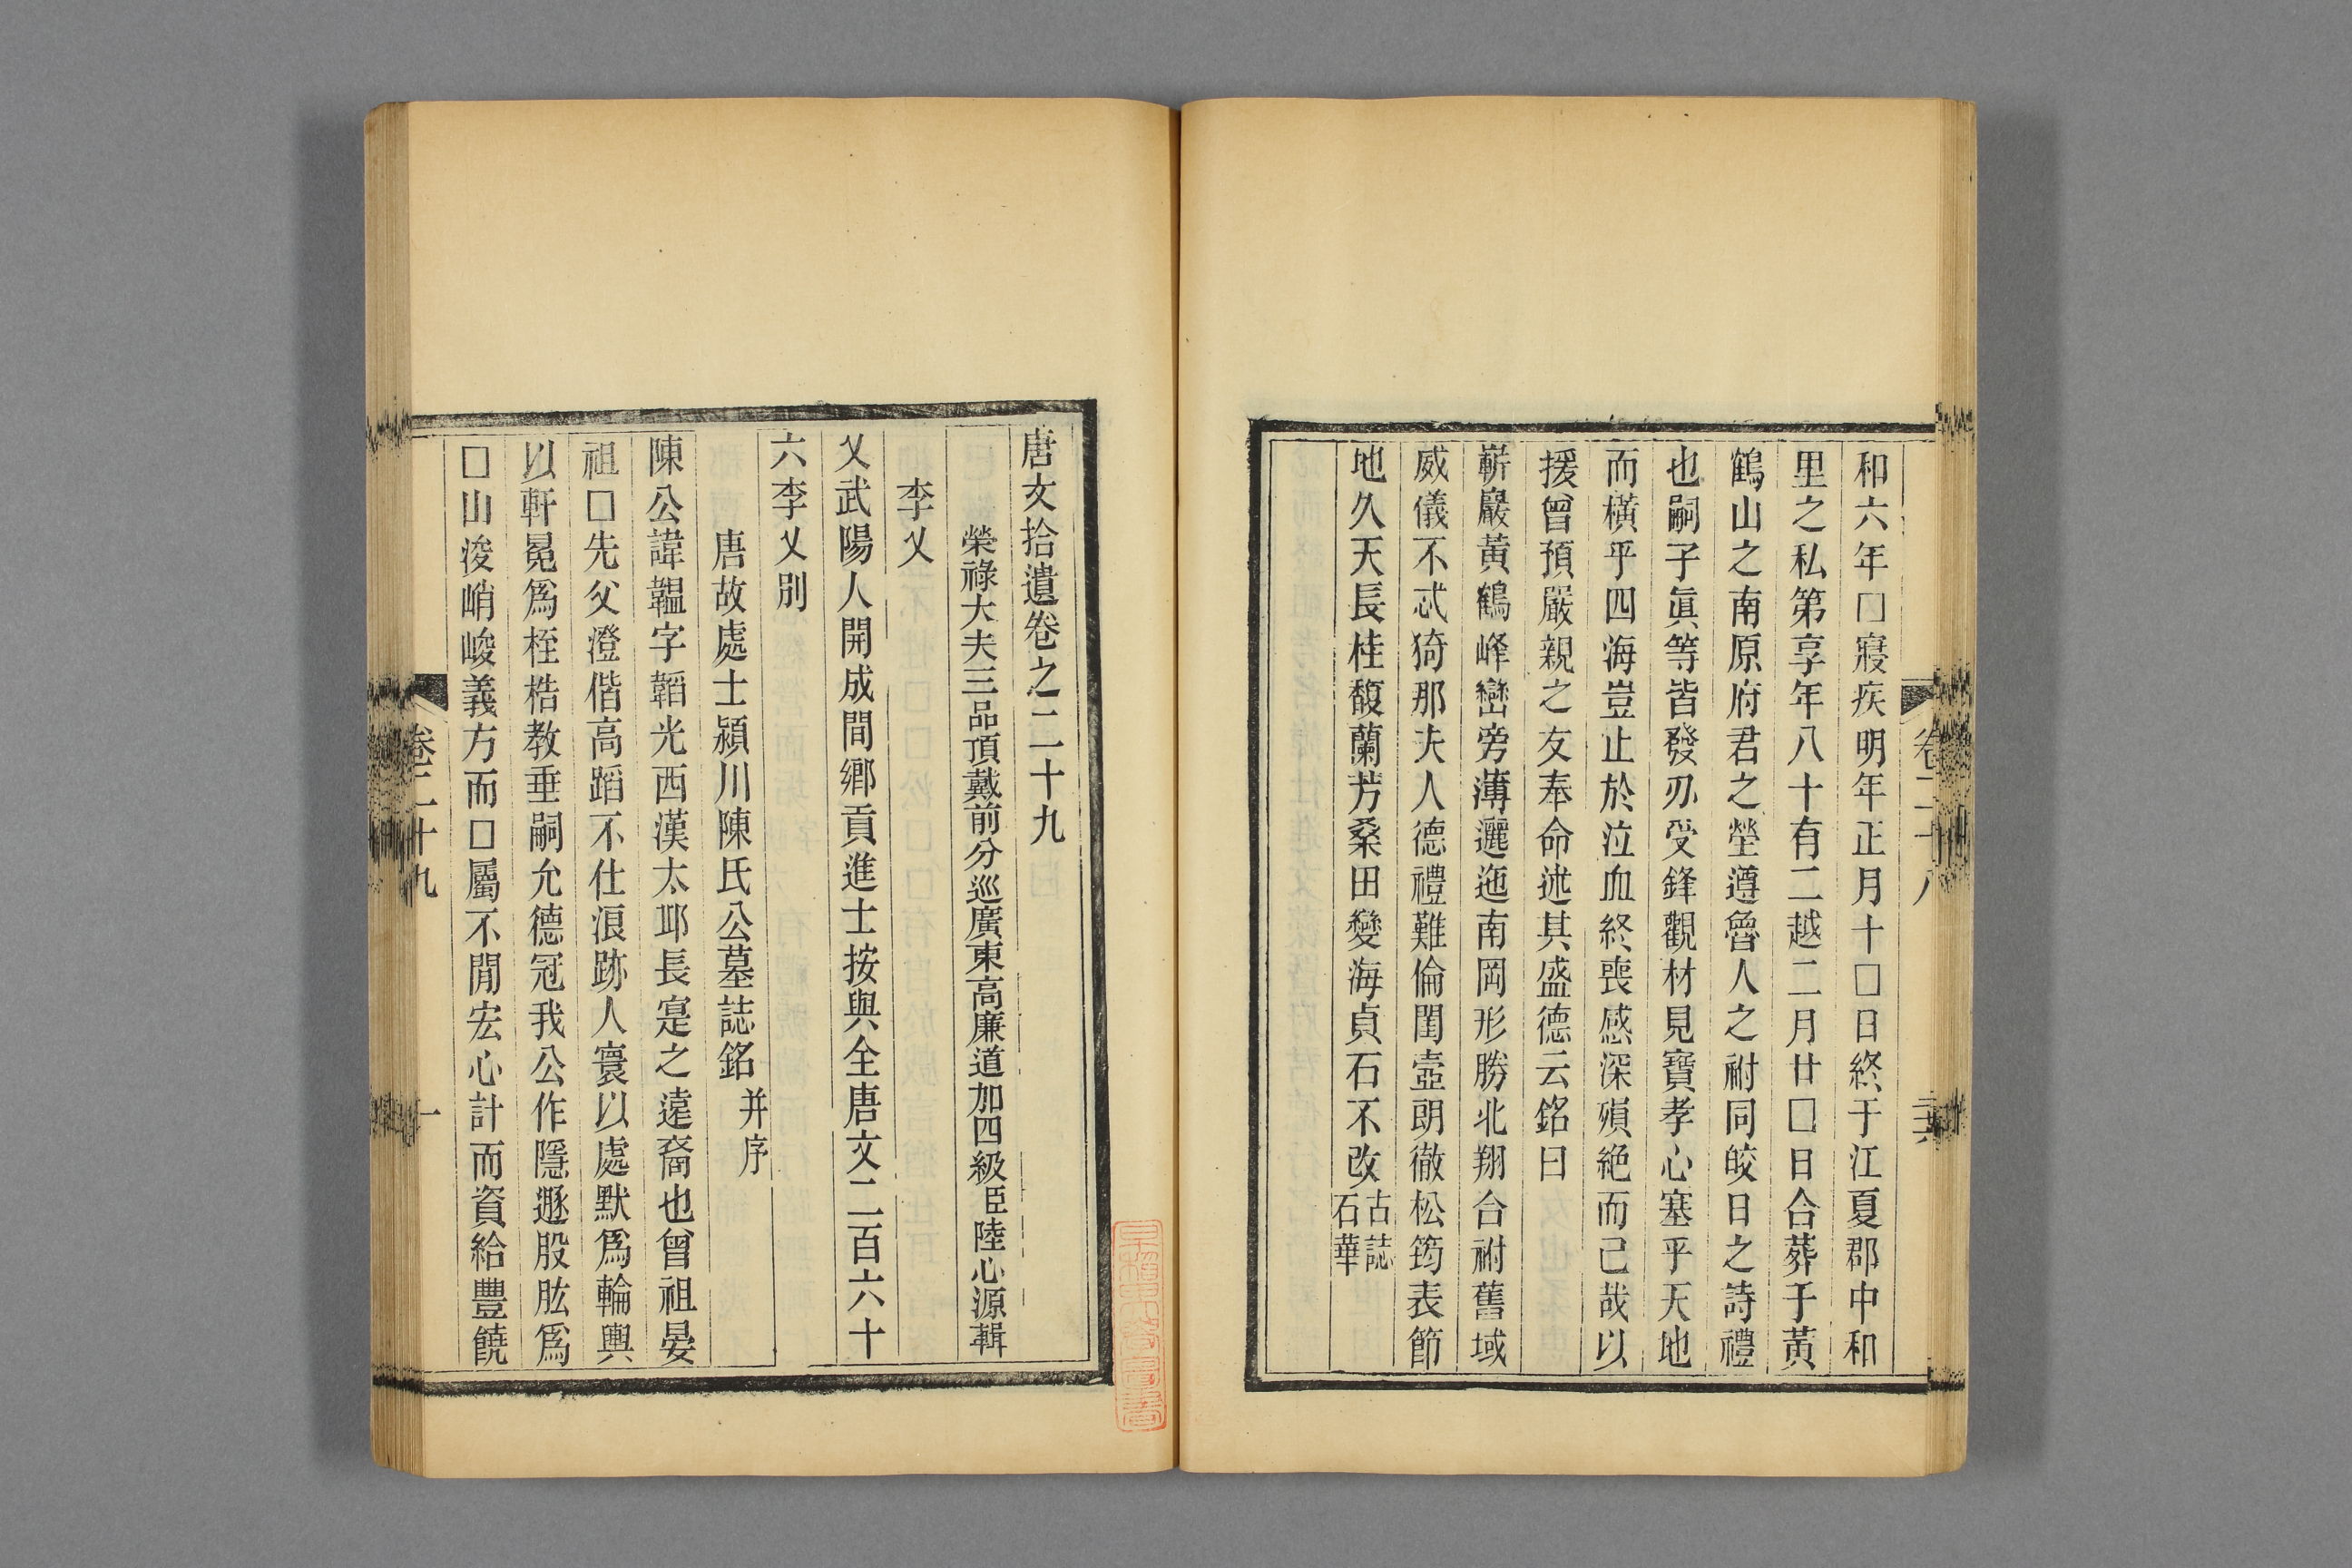 和六年□寢疾明年正月十□日終于江夏郡中和
里之私第享年八十有二越二月廿□日合葬于黃
鶴山之南原府君之塋遵魯人之祔同皎日之詩禮
也嗣子眞等皆發刃受鋒觀材見寶孝心塞乎天地
而橫乎四海豈止於泣血終喪感深殞絶而己哉以
援曾預嚴親之友奉命述其盛德云銘曰
嶄巖黃鶴峰巒旁薄邐迤南岡形勝北翔合祔舊域
威儀不忒猗那夫人德禮難倫閨壼朗徹松筠表節
地久天長桂馥蘭芳桑田變海貞石不改古誌
石華
卷二十八
唐文拾遺卷之二十九
榮祿大夫三品頂戴前分巡廣東高廉道加四級臣陸心源輯
李乂
乂武陽人開成間鄉貢進士按與全唐文二百六十
六李乂別
唐故處士潁川陳氏公墓誌銘并序
陳公諱韞字韜光西漢太邱長寔之遠裔也曾祖晏
祖□先父澄偕高蹈不仕浪跡人寰以處默爲輪輿
以軒冕爲桎梏教垂嗣允德冠我公作隱遯股肱爲
□山浚峭峻義方而□屬不閒宏心計而資給豐饒
卷二十九
一